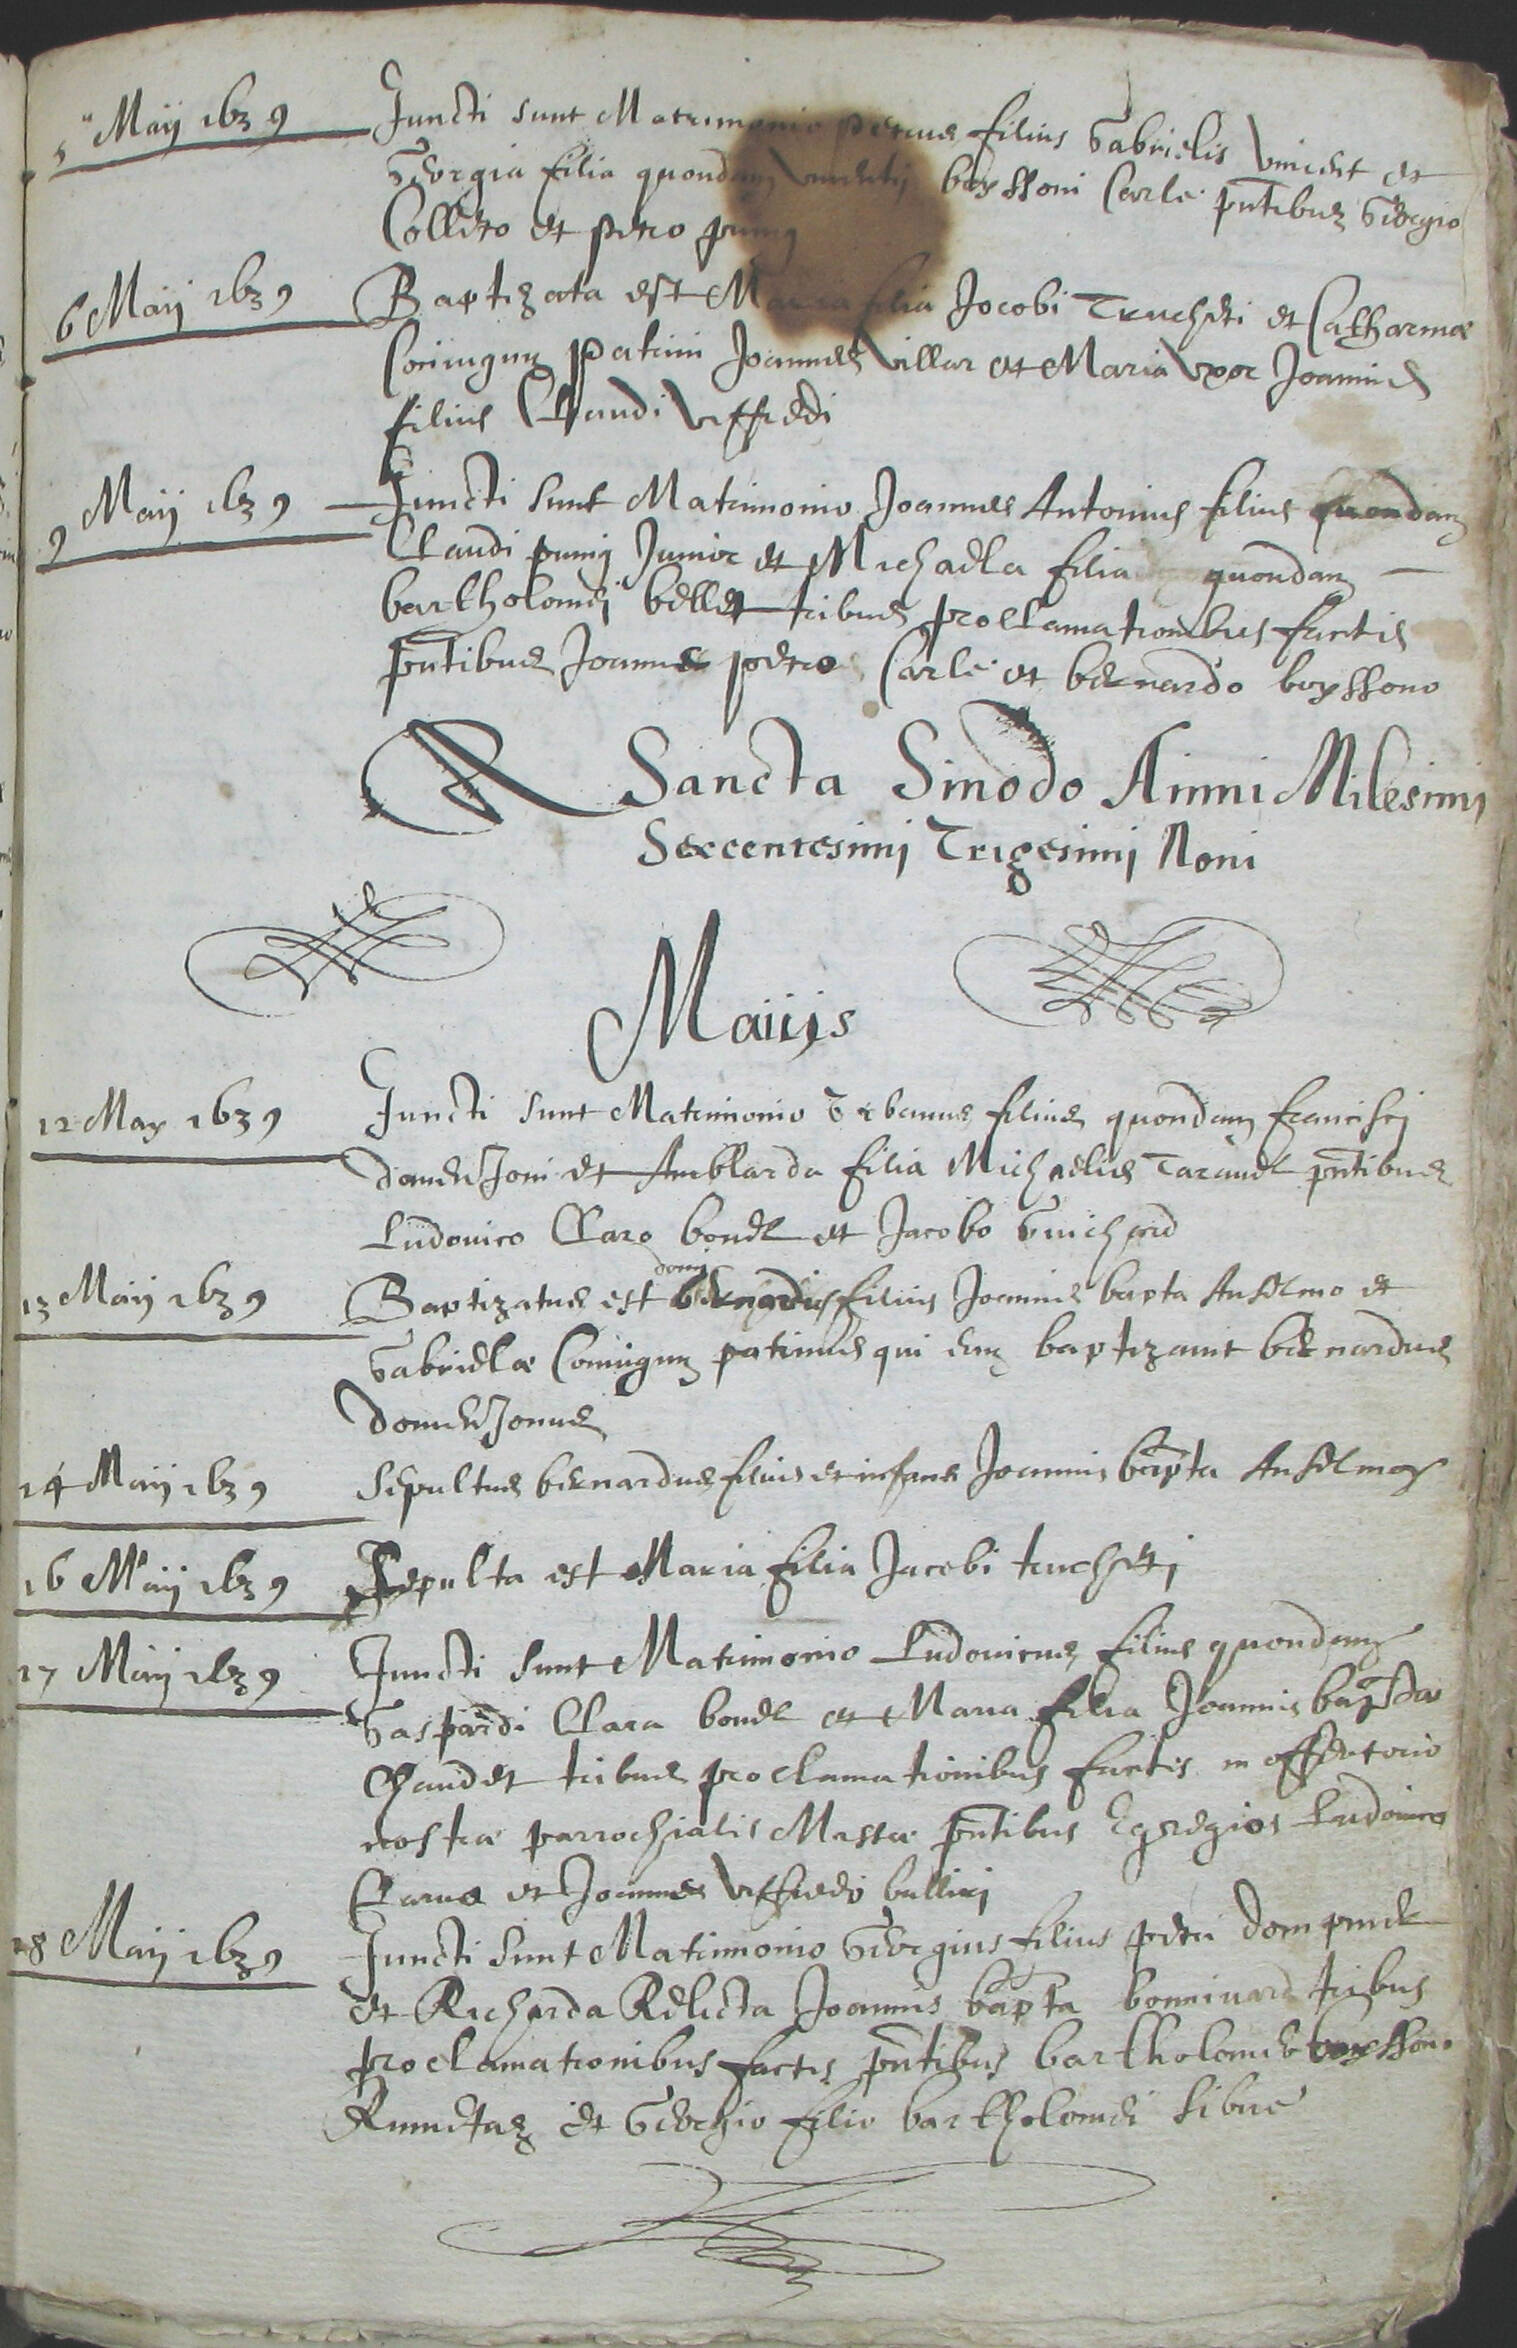 5 Maij 1639 Juncti sunt Matrimonio petrus filius Gabrielis Vincent et
Georgia filia quondam Vincentij boyssoni Carle pntibus Georgio
Colleto et petro prunij
6 Maij 1639 Baptizata est Maria filia Jacobi Trucheti et Catharinæ
Coniugum patrini Joannes Villar et Maria Vxor Joannis
filius Claudi Vffredi
9 Maij 1639 Juncti sunt Matrimonio Joannes Antonius filius quondam
Claudi prunij Junior et Michaela filia quondam
bartholomei bellet tribus proclamationibus factis
pntibus Joanne petro Carle et bernardo boyssono
A Sancta Sinodo Anni Milesimi
Sexcentesimj Trigesimj Noni
Maiijs
12 May 1639 Juncti sunt Matrimonio Vrbanus filius quondam francisci
domenJoni et Amblarda filia Michaelis Taravel pntibus
Ludovico Claro bondl et Jacobo Guichard
13 Maij 1639 Baptizatus est domi bernardus filius Joannis bapta Anselmo et
Gabrielæ Coniugum patrinus qui eum baptizavit bernardus
domenJonus
14 Maij 1639 Sepultus bernardus filius et infans Joannis bapta Anselmoz
16 Maij 1639 Sepulta est Maria filia Jacobi truchetj
17 Maij 1639 Juncti sunt Matrimonio Ludovicus filius quondam
Gaspardi Clara bondl et Maria filia Joannis baptistæ
Chaudet tribus proclamationibus factis in offertorio
nostræ parrochialis Missæ pntibus Egregios Ludovico
Clarus et Joannes Vffredi
18 Maij 1639 Juncti sunt Matrimonio Georgius filius petri
et Richarda Relicta Joannis bapta bonnivard tribus
proclamationibus factis pntibus bartholomeo boyssono
et Georgio filio bartholomei Sibue